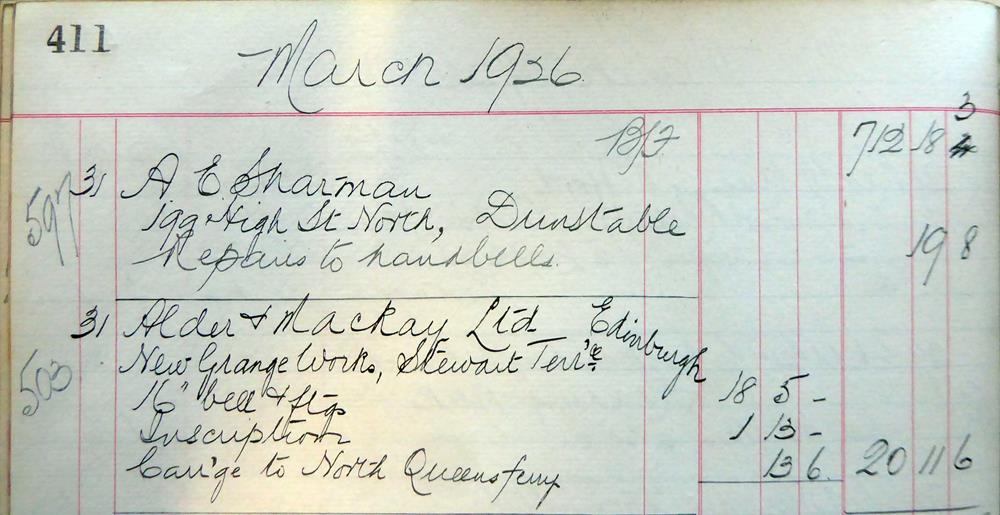 411
March 1926
B/F 712 18 3
597 31 A E Sharman
199 High St North, Dunstable
Repairs to handbells. 19 8
503 31 Alder & Mackay Ltd Edinburgh
New Grange Works, Stewart Terrce
16" bell & ftgs 18 5 -
Inscription 1 13 -
Carr'ge to North Queensferry 13 6 20 11 6